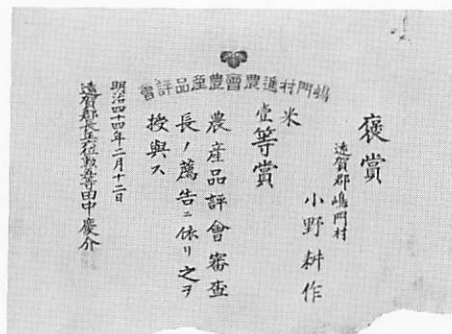 嶋門村進農會農産品評會
褒賞
遠賀郡嶋門村
小野耕作
米
壹等賞
農産品評會審査
長ノ薦告ニ依リ之ヲ
授與ス
明治四十四年二月十二日
遠賀郡長正六位勲五等田中慶介